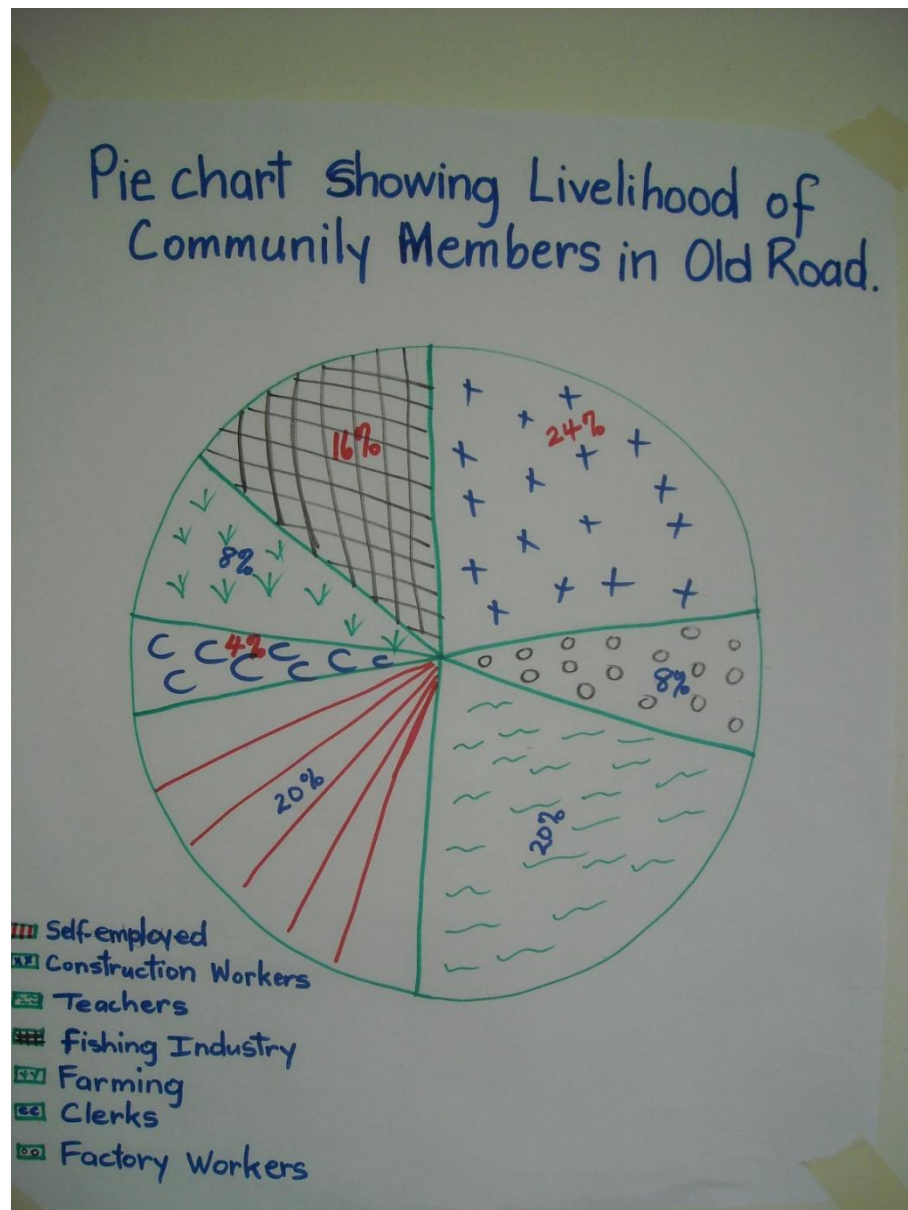 Pie chart showing Livelihood of
Communily Members in Old Road.
16%
24%
8%
4%
8%
20%
20%
Self-employed
Construction Workers
Teachers
Fishing Industry
Farming
Clerks
Factory Workers